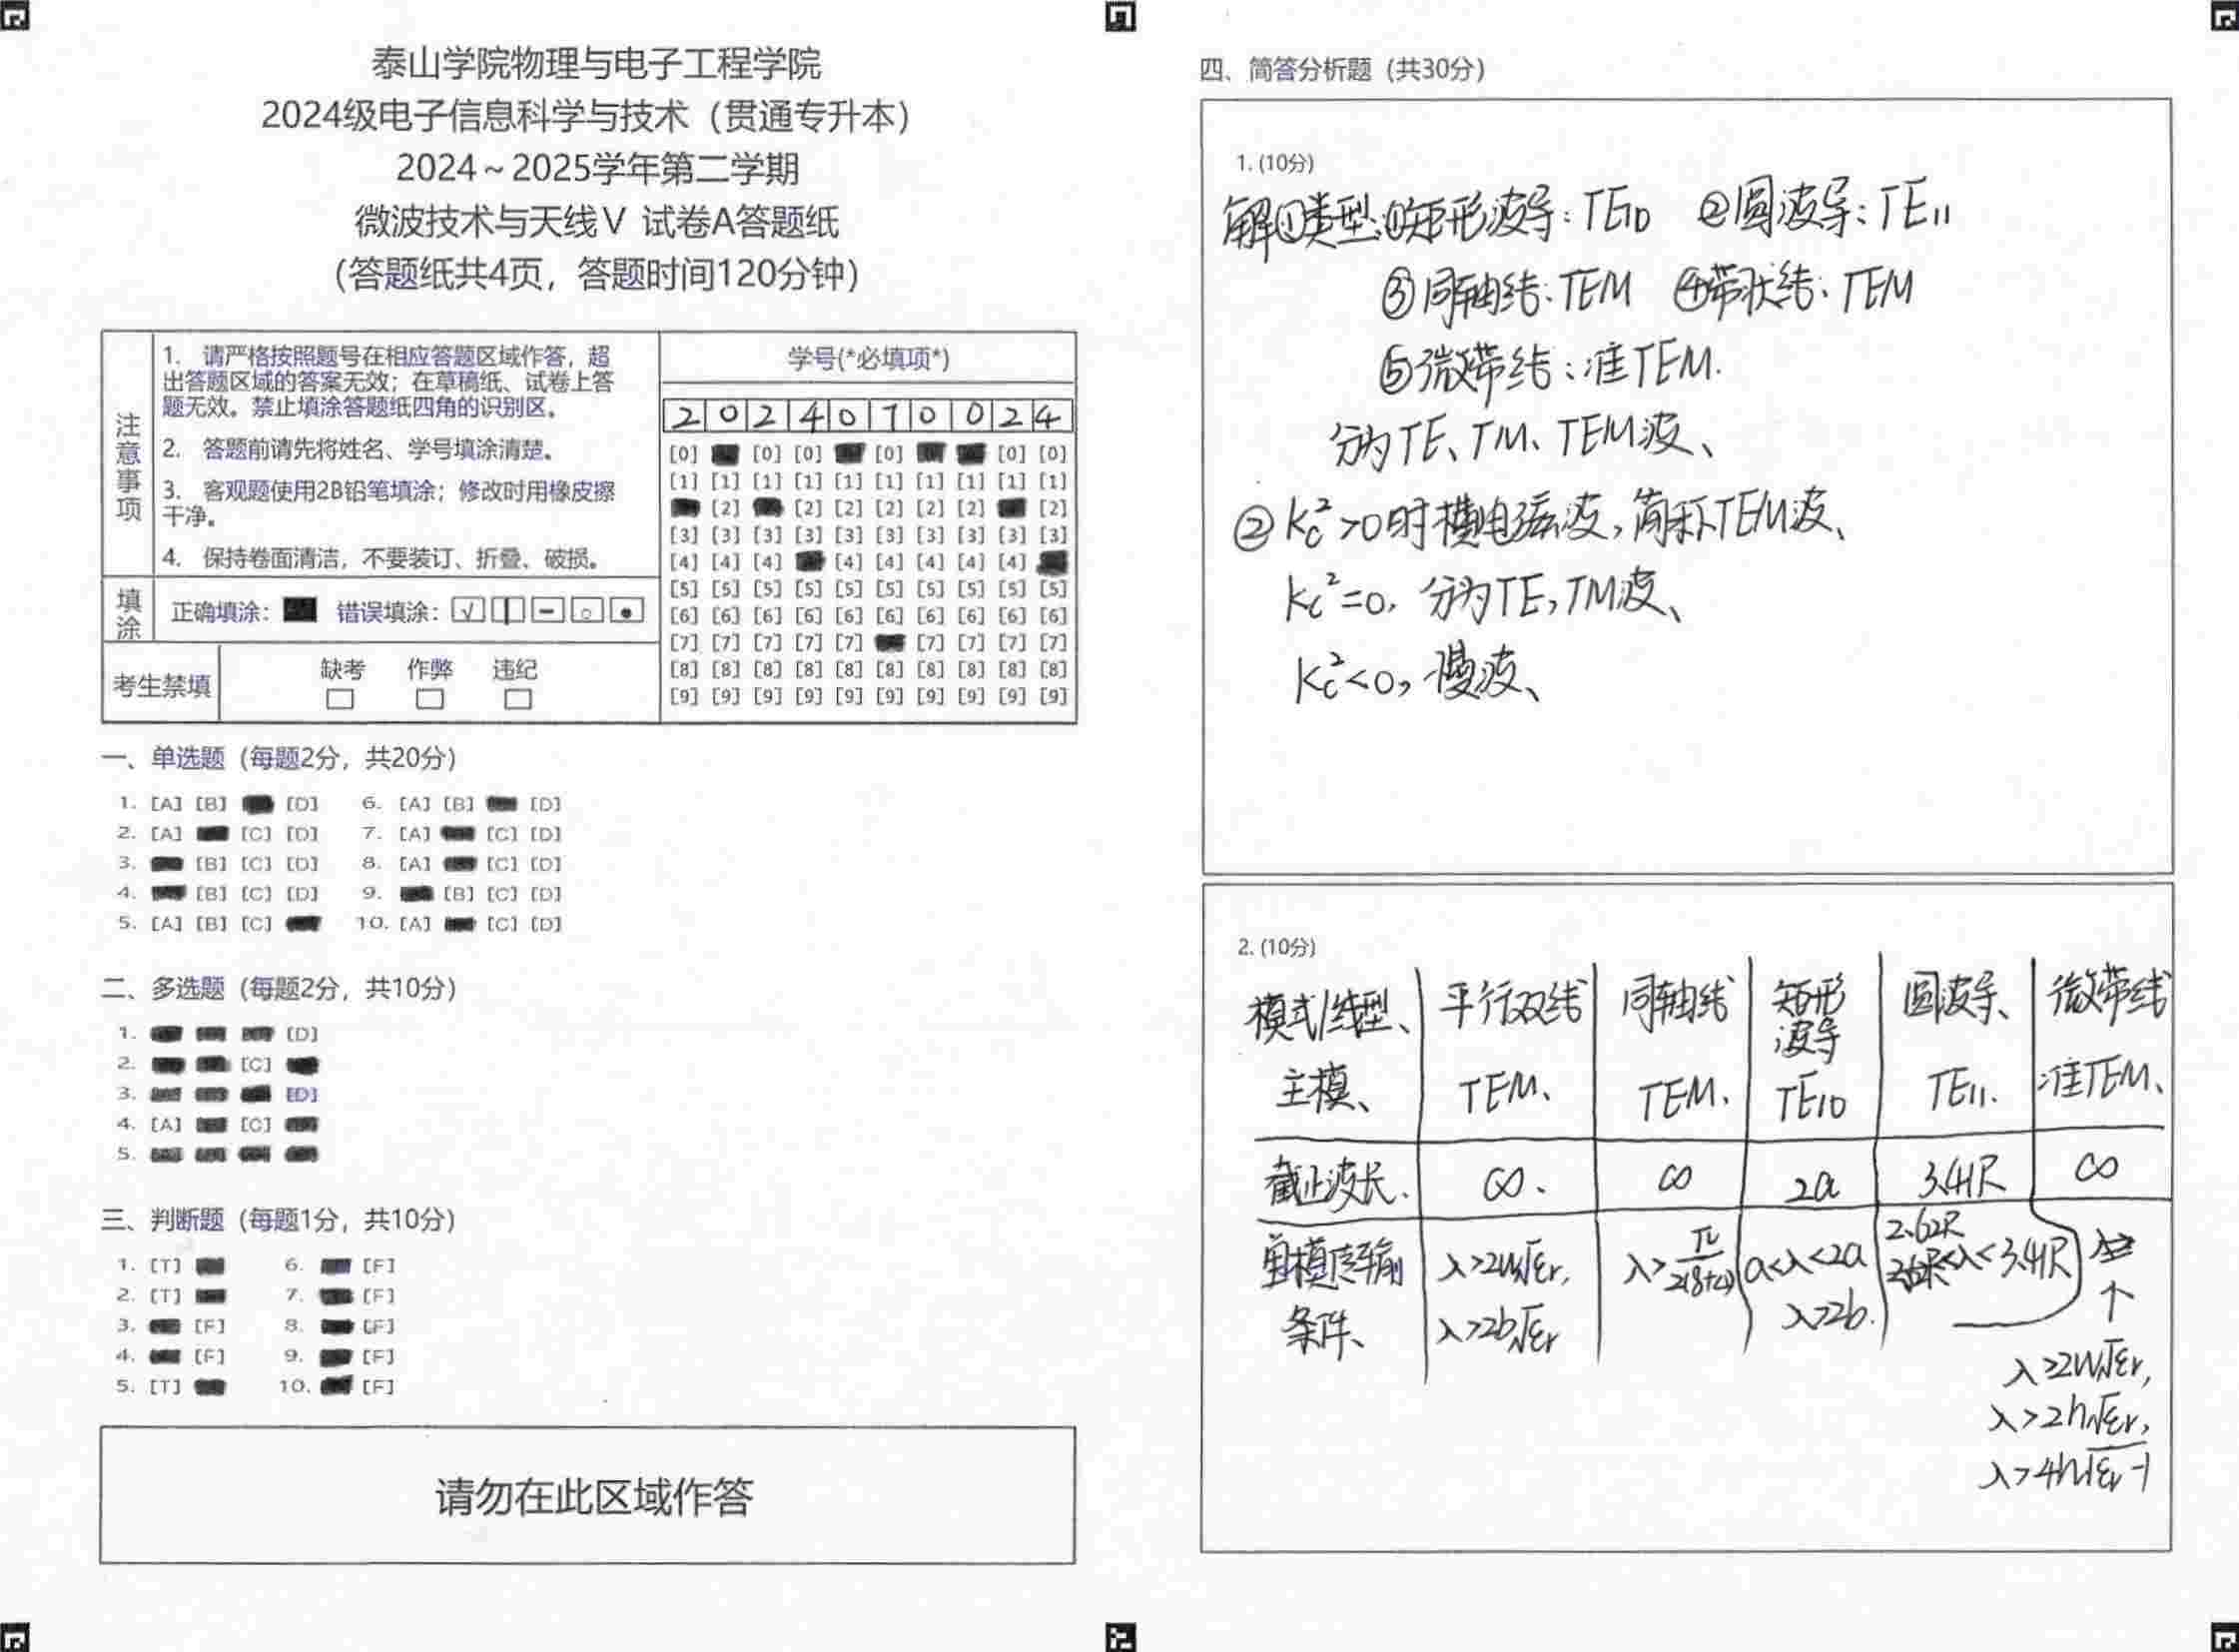 泰山学院物理与电子工程学院
2024级电子信息科学与技术（贯通专升本）
2024～2025学年第二学期
微波技术与天线Ⅴ 试卷A答题纸
（答题纸共4页，答题时间120分钟）
注意事项
1. 请严格按照题号在相应答题区域作答，超
出答题区域的答案无效；在草稿纸、试卷上答
题无效。禁止填涂答题纸四角的识别区。
2. 答题前请先将姓名、学号填涂清楚。
3. 客观题使用2B铅笔填涂；修改时用橡皮擦
干净。
4. 保持卷面清洁，不要装订、折叠、破损。
填涂 正确填涂： 错误填涂：
考生禁填 缺考 作弊 违纪
学号(*必填项*)
2 0 2 4 0 7 0 0 2 4
[0] [0] [0] [0] [0] [0]
[1] [1] [1] [1] [1] [1] [1] [1] [1] [1]
[2] [2] [2] [2] [2] [2] [2]
[3] [3] [3] [3] [3] [3] [3] [3] [3] [3]
[4] [4] [4] [4] [4] [4] [4] [4]
[5] [5] [5] [5] [5] [5] [5] [5] [5] [5]
[6] [6] [6] [6] [6] [6] [6] [6] [6] [6]
[7] [7] [7] [7] [7] [7] [7] [7] [7]
[8] [8] [8] [8] [8] [8] [8] [8] [8] [8]
[9] [9] [9] [9] [9] [9] [9] [9] [9] [9]
一、单选题（每题2分，共20分）
1. [A] [B] [D] 6. [A] [B] [D]
2. [A] [C] [D] 7. [A] [C] [D]
3. [B] [C] [D] 8. [A] [C] [D]
4. [B] [C] [D] 9. [B] [C] [D]
5. [A] [B] [C] 10. [A] [C] [D]
二、多选题（每题2分，共10分）
1. [D]
2. [C]
3. [D]
4. [A] [C]
5.
三、判断题（每题1分，共10分）
1. [T] 6. [F]
2. [T] 7. [F]
3. [F] 8. [F]
4. [F] 9. [F]
5. [T] 10. [F]
请勿在此区域作答
四、简答分析题（共30分）
1. (10分)
解①类型:①矩形波导：TE10 ②圆波导：TE11
③同轴线：TEM ④带状线：TEM
⑤微带线：准TEM.
分为TE、TM、TEM波、
② Kc²>0时横电磁波，简称TEM波、
Kc²=0，分为TE，TM波、
Kc²<0，慢波、
2. (10分)
模式/线型、 平行双线 同轴线 矩形波导 圆波导、 微带线
主模、 TEM、 TEM. TE10 TE11. 准TEM、
截止波长. ∞. ∞ 2a 3.41R ∞
单模传输条件、 λ>2w√εr, λ>2b√εr a<λ<2a λ>2b. 2.62R <λ<3.41R
λ>2w√εr,
λ>2h√εr,
λ>4h√εr-1